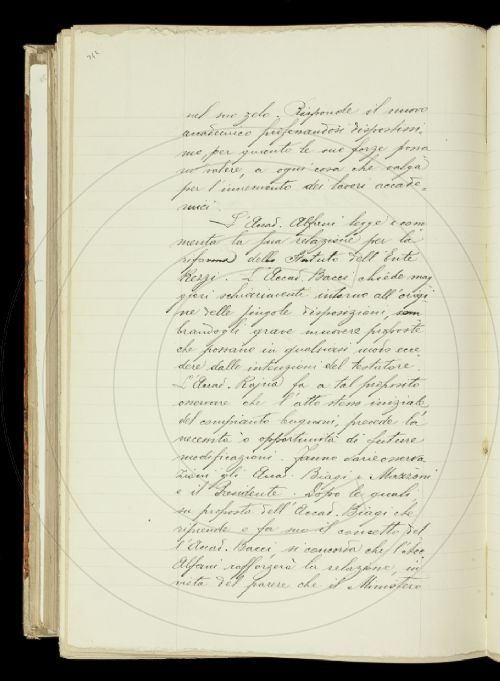 nel suo zelo. Risponde il nuovo
accademico professandosi dispostissi-
mo, per quanto le sue forze possa
no valere, a ogni cosa che valga
per l'incremento dei lavori accade-
mici.
L'Accad. Alfani legge e com
menta la sua relazione per la
riforma dello Statuto dell'Ente
Rezzi. L'Accad. Bacci chiede mag
giori schiarimenti intorno all'origi
ne delle singole disposizioni, sem
brandogli grave muovere proposte
che possano in qualsiasi modo ecce
dere dalle intenzioni del testatore.
L'Accad. Rajna fa a tal proposito
osservare che l'atto stesso iniziale
del compianto prevede la
necessità o opportunità di future
modificazioni. Fanno varie osserva
zioni gli Accad. Biagi e Mazzoni
e il Presidente. Dopo le quali,
su proposta dell'Accad. Biagi che
riprende e fa suo il concetto del
l'Accad. Bacci, si concorda che l'Acc.
Alfani rafforzerà la relazione, in
vista del parere che il Ministero